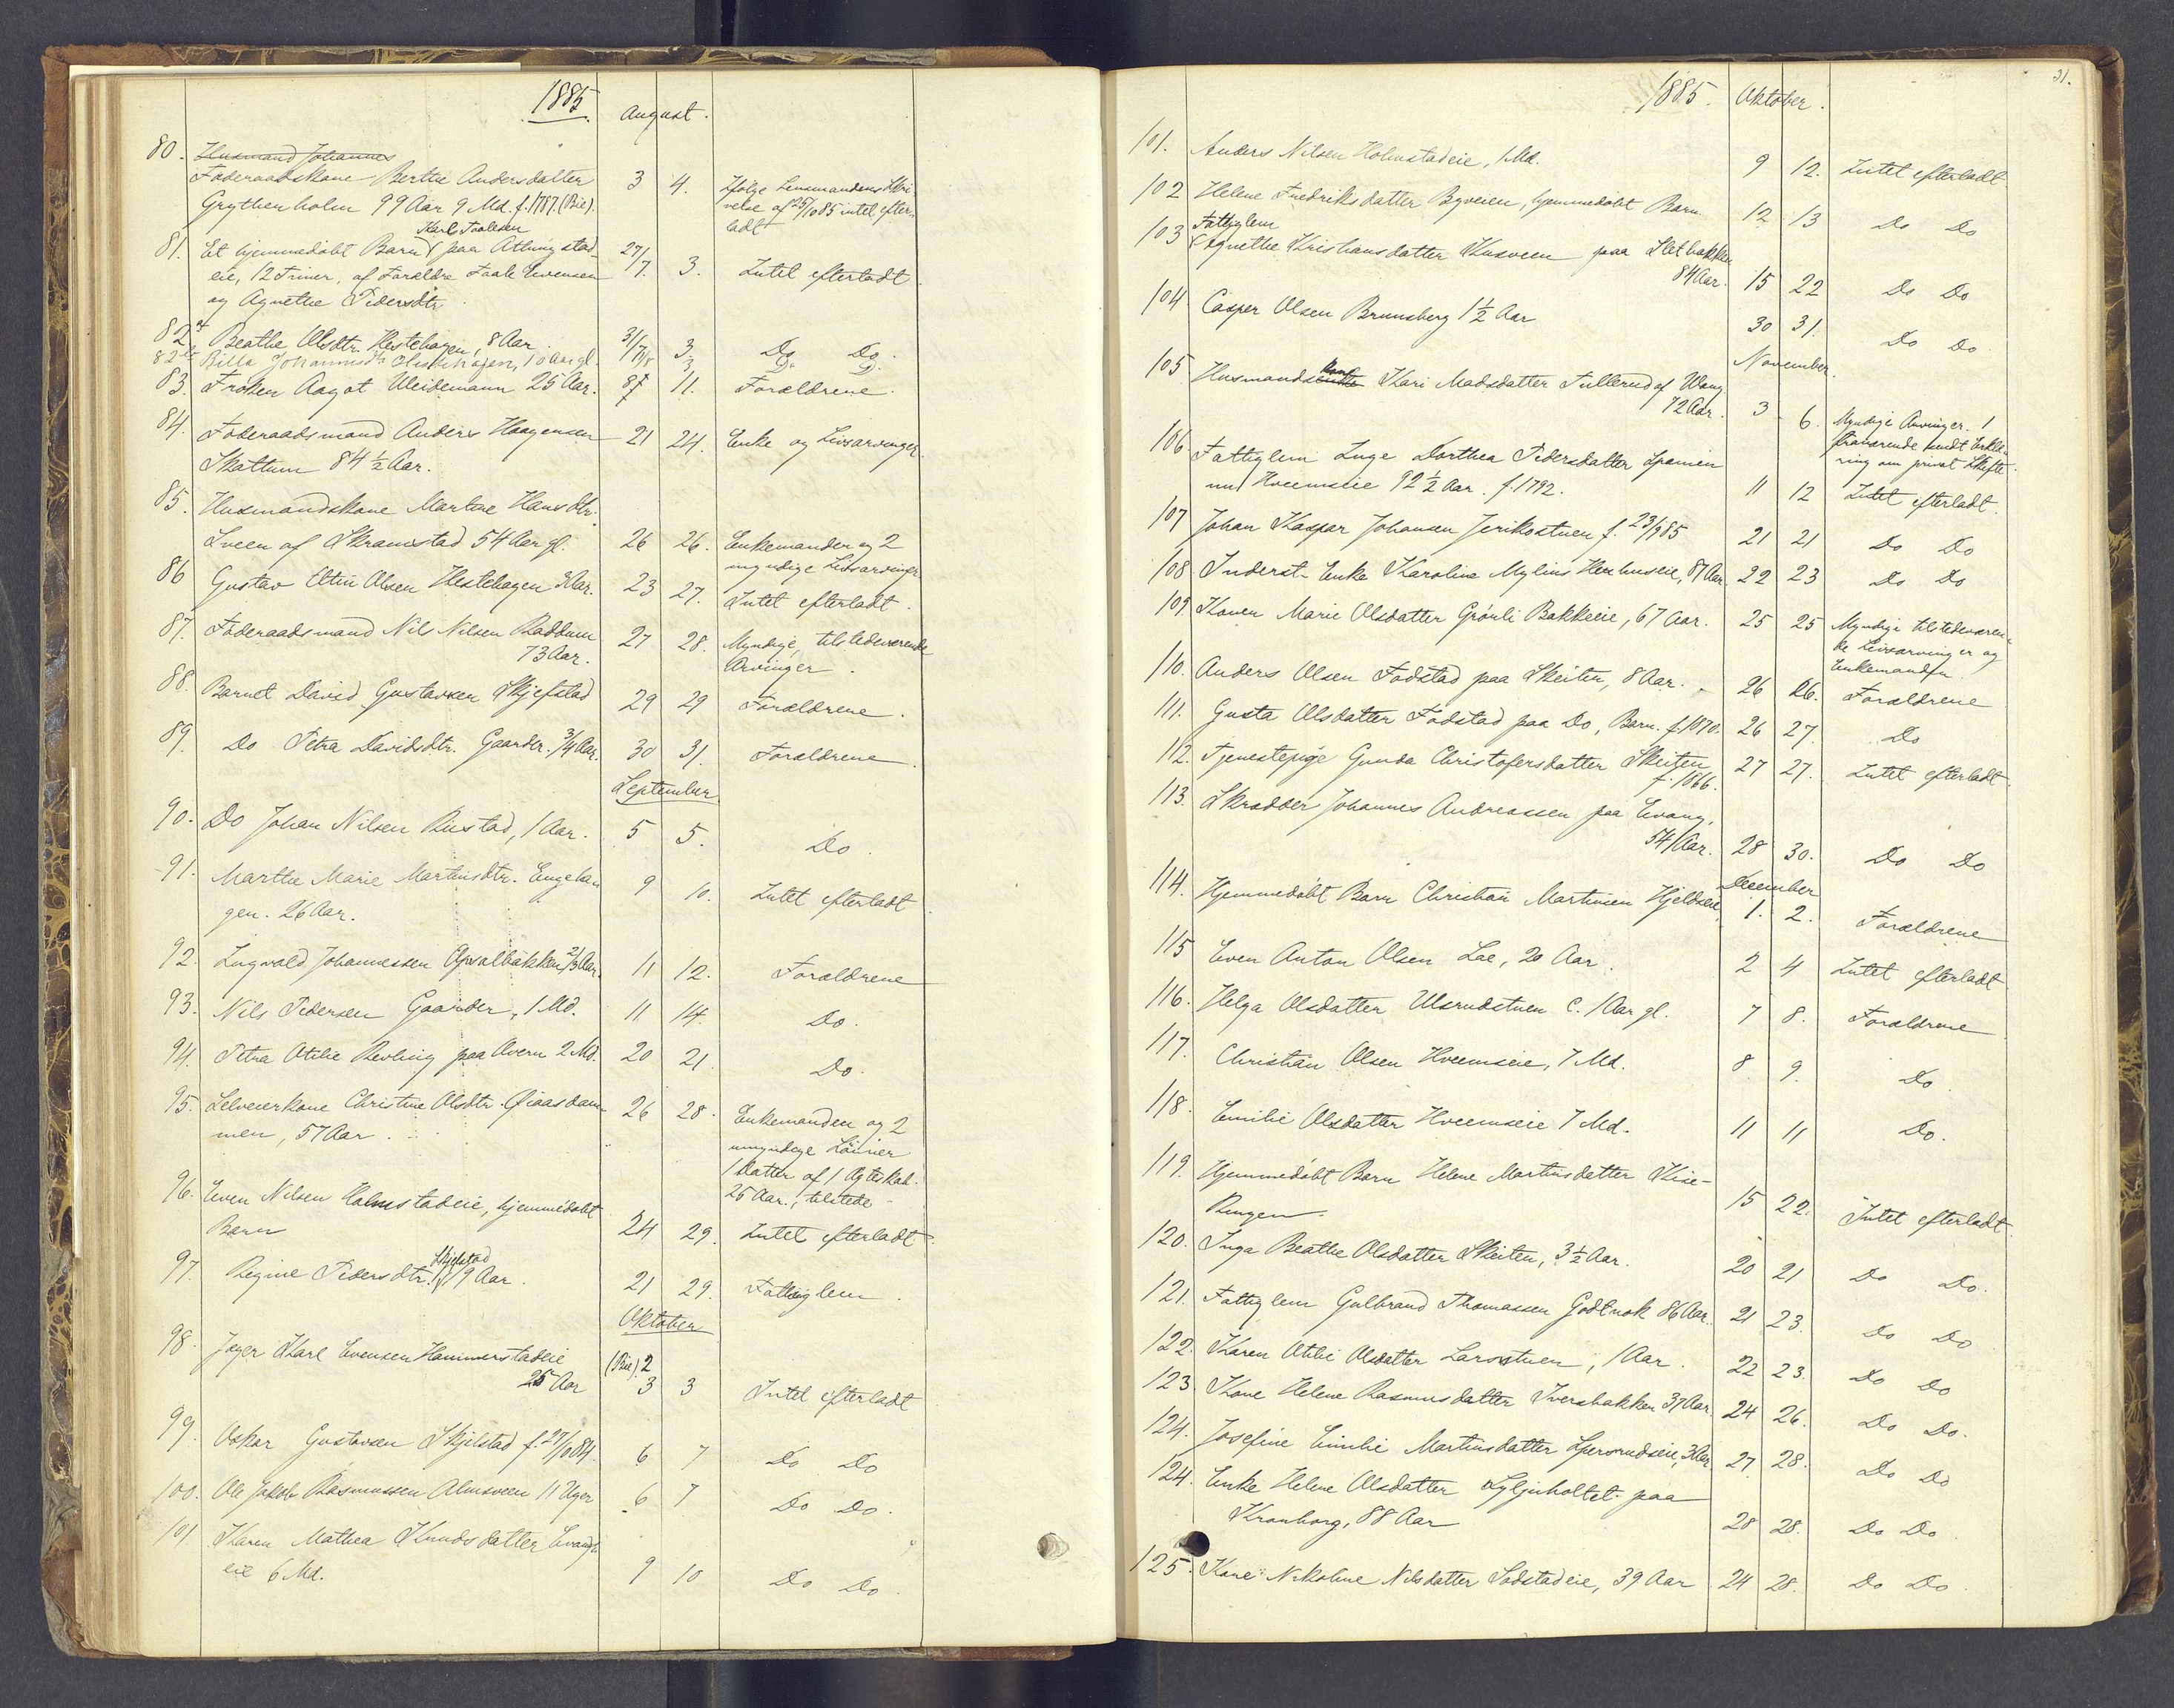 1885
August.
80. Husmand Johannes
Føderaadskone Berthe Andersdatter
Grythenholm 99 Aar 9 Md. f. 1787. (Bie). 3 4. Ifølge Lensmandens Skri
velse af 25/10 85 intet efter
ladt
Karl Taalesen
81. Et hjemmedøbt Barn paa Athingstad
eie, 12 Timer, af Forældre Taale Evensen 27/7. 3. Intet efterladt
og Agnethe Pedersdtr
82a Beathe Olsdtr. Hestehagen, 8 Aar. 31/7 3. Do Do.
82b Rilla Johannesdtr 10 Aar gl. 3 Do D.
83. Frøken Aagot Weidemann 25 Aar. 8 11. Forældrene.
84. Føderaadsmand Anders Haagensen 21 24. Enke og Livsarvinger.
Skattum 84 1/2 Aar.
85. Husmandskone Martine Hansdtr.
Sveen af Skramstad 54 Aar gl. 26 26. Enkemanden og 2
myndige Livsarvinger
86 Gustav Olsen Hestehagen Aar. 23 27. Intet efterladt.
87. Føderaadsmand Nils Nilsen Raddum 27 28. Myndige, tilstedeværende
73 Aar. Arvinger.
88. Barnet David Gustavsen Skjefstad 29 29 Forældrene.
89. Do Petra Davidsdtr. Gaarder. 3/4 Aar. 30 31. Forældrene.
September
90. Do Johan Nilsen Rustad, 1 Aar. 5 5. Do.
91. Marthe Marie Martinsdtr. Engehau 9 10. Intet efterladt
gen. 26 Aar.
92. Ingvald Johannessen Opsalbakken 2/3 Aar. 11 12. Forældrene
93. Nils Pedersen Gaarder, 1 Md. 11 14. Do.
94. Petra Otilie Revling paa Avern 2 Md. 20 21. Do.
95. Selveierkone Christine Olsdtr. Øiaasdam- 26 28. Enkemanden og 2
men, 57 Aar. umyndige Sønner
1 Datter af 1 Ægteskab.
25 Aar, tilstede
96. Even Nilsen Holmstadeie, hjemmedøbt
Barn 24 29. Intet efterladt.
Skjelstad
97. Regine Pedersdtr. 19 Aar. 21 29. Fattiglem.
Oktober
98. Jæger Karl Evensen Hammerstadeie (Bie) 2
25 Aar 3 3 Intet efterladt
99. Oskar Gustavsen Skjelstad f. 27/10 84. 6 7 Do Do
100. Ole Jakob Rasmussen Almsveen 11 Uger 6 7 Do Do.
101 Karen Mathea Knudsdatter Evang
eie 6 Md. 9 10 Do Do.
31.
1885. Oktober.
101. Anders Nilsen Holmstadeie, 1 Md. 9 12. Intet efterladt.
102 Helene Fredriksdatter Byveien, hjemmedøbt Barn 12 13 Do Do
Fattiglem
103 Agnethe Kristiansdatter Kusveen paa Sletbakken
84 Aar. 15 22 Do Do
104 Casper Olsen Brunsberg 1 1/2 Aar 30 31. Do Do.
November.
kone
105 Husmandsenke Kari Madsdatter Tullerud af Wang
72 Aar. 3 6. Myndige Arvinger. 1
fraværende sendt Erklæ-
ring om privat Skifte.
106 Fattiglem Inge Dorthea Pedersdatter Spanien
und Hveemseie 92 1/2 Aar. f. 1792. 11 12 Intet efterladt.
107 Johan Kaspar Johansen Jerikostuen f. 23/9 85 21 21 Do Do
108 Inderst-Enke Karoline Mylius Hexhuseie, 87 Aar 22 23 Do Do
109 Konen Marie Olsdatter Grønli Bakkeeie, 67 Aar. 25 25 Myndige tilstedeværen-
de Livsarvinger og
Enkemanden
110. Anders Olsen Fodstad paa Skeiten, 8 Aar. 26 26. Forældrene
111. Gusta Olsdatter Fodstad paa Do, Barn. f. 1870. 26 27. Do
112. Tjenestepige Gunda Christofersdatter Skeiten 27 27. Intet efterladt.
f. 1866.
113. Skrædder Johannes Andreassen paa Evang,
54 Aar. 28 30. Do Do
December
114. Hjemmedøbt Barn Christian Martinsen Hjeldseie 1. 2. Forældrene
115 Even Anton Olsen Loe, 20 Aar. 2 4 Intet efterladt
116. Helga Olsdatter Ulsrudstuen C. 1 Aar gl. 7 8. Forældrene
117. Christian Olsen Hveemseie, 7 Md. 8 9. Do.
118. Emilie Olsdatter Hveemseie 7 Md. 11 11 Do.
119. Hjemmedøbt Barn Helene Martinsdatter Kise-
Ringen. 15 22. Intet efterladt.
120. Inga Beathe Olsdatter Skeiten, 3 1/2 Aar. 20 21 Do Do.
121. Fattiglem Gulbrand Thomassen Godtnok 86 Aar. 21 23. Do Do
122. Karen Otilie Olsdatter Larsstuen, 1 Aar. 22 23. Do Do
123. Kone Helene Rasmusdatter Iversbakken 37 Aar. 24 26. Do Do.
124. Josefine Emilie Martinsdatter Spersrudseie, 3 Aar 27 28. Do Do
124. Enke Helene Olsdatter Lyljuholtet paa
Kronborg, 88 Aar 28 28. Do Do.
125. Kone Nikoline Nilsdatter Sodstadeie, 39 Aar 24 28. Do Do.